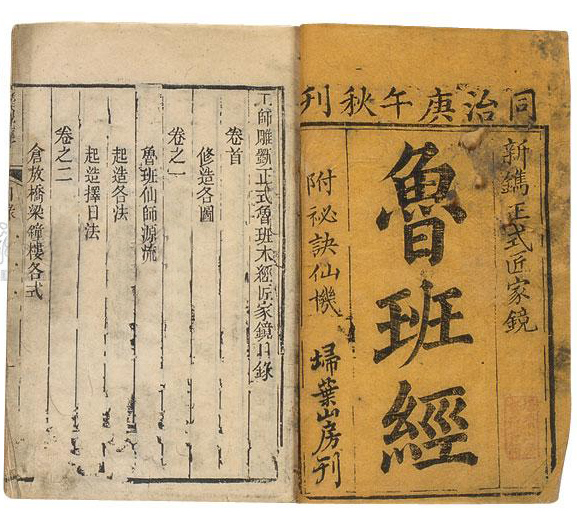 同治庚午秋刊
新鐫正式匠家鏡
魯班經
附祕訣仙機
埽葉山房刊
工師雕斲正式魯班木經匠家鏡目錄
卷首
修造各圖
卷之一
魯班仙師源流
起造各法
起造擇日法
卷之二
倉敖橋梁鐘樓各式